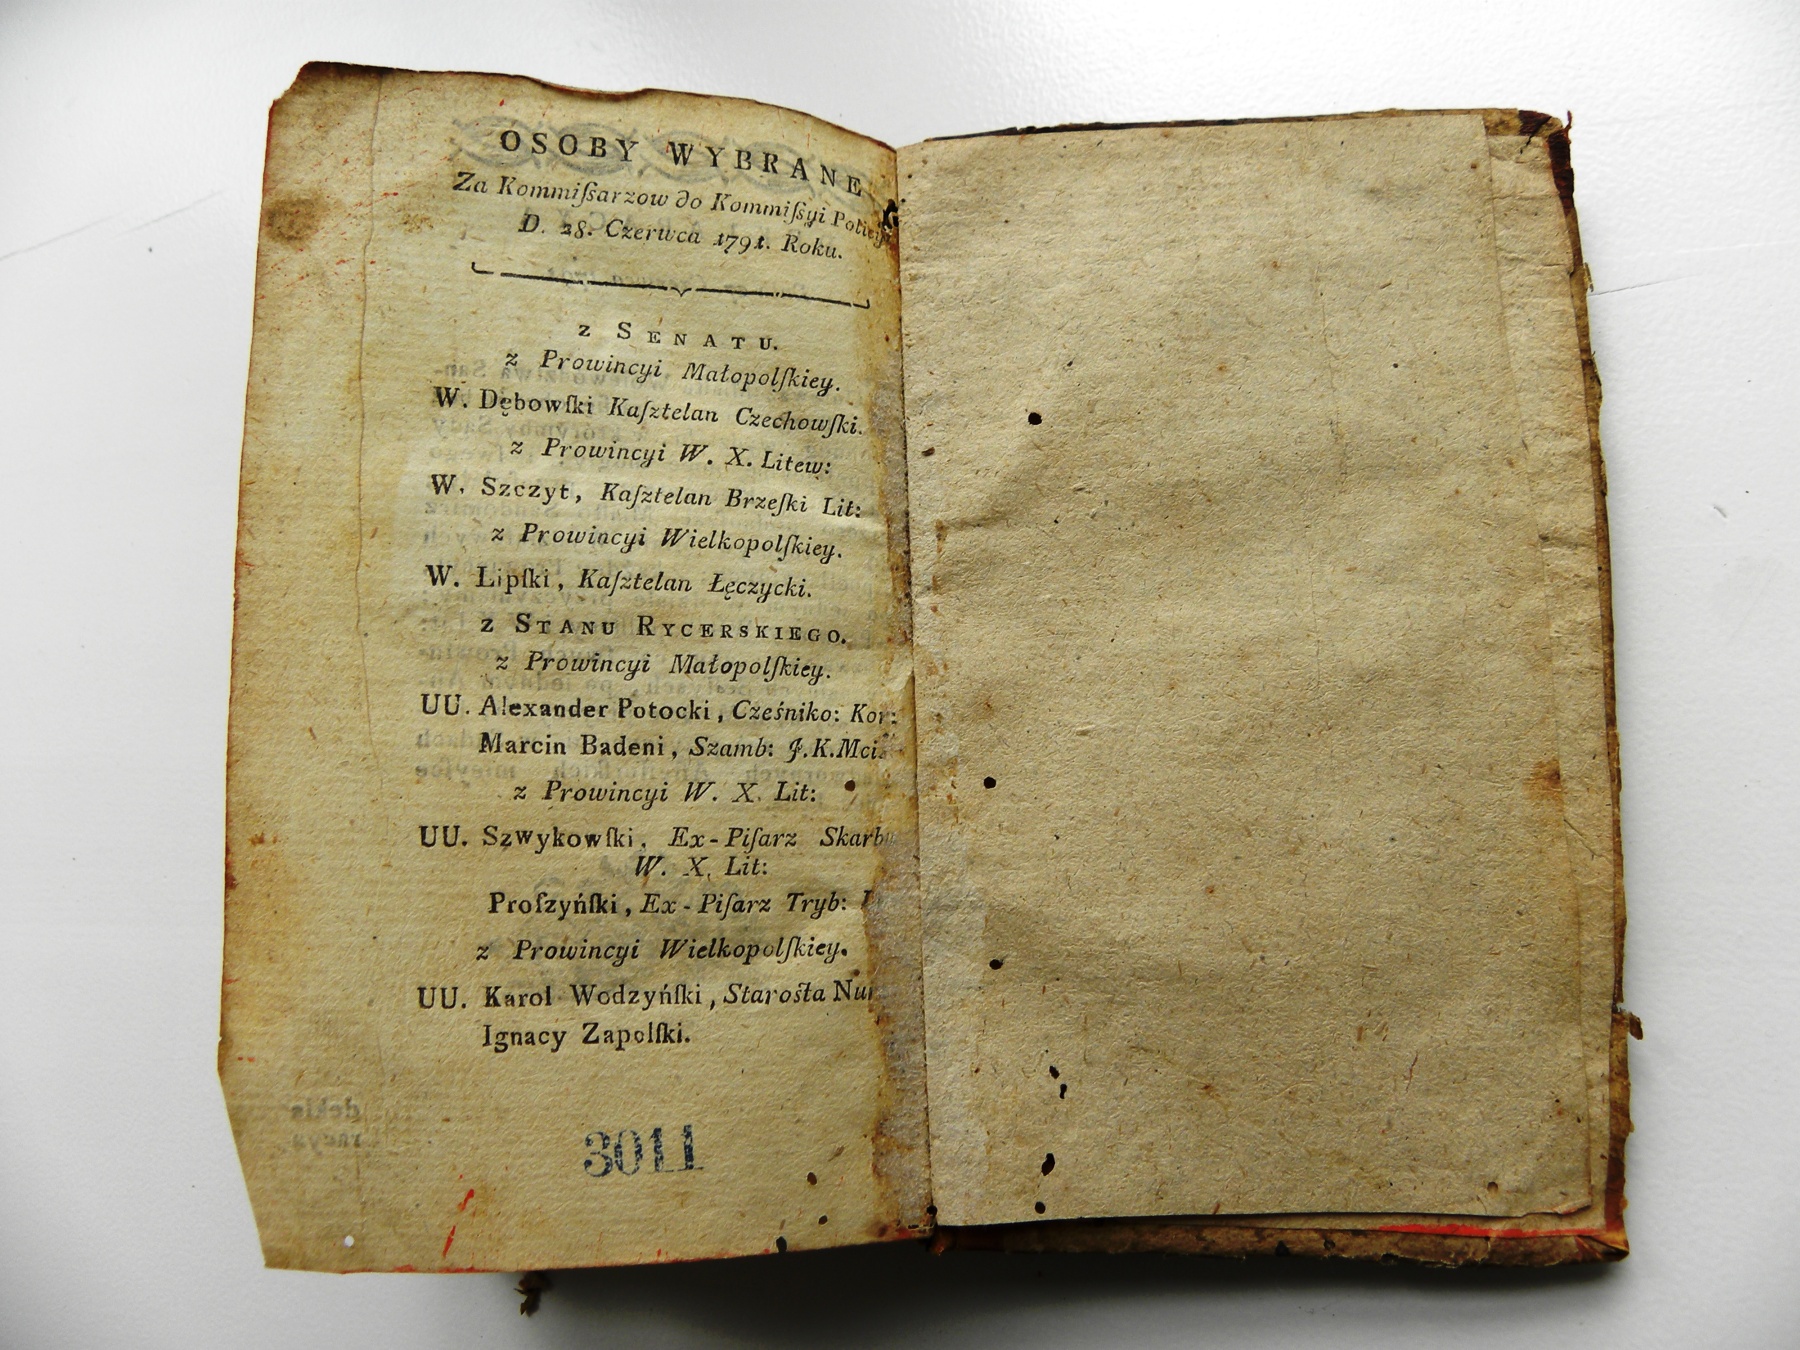 OSOBY WYBRANE
Za Kommiſsarzow do Kommiſsyi Policyi
D. 28. Czerwca 1791. Roku.
z SENATU.
z Prowincyi Małopolſkiey.
W. Dębowſki Kaſztelan Czechowſki.
z Prowincyi W. X. Litew:
W. Szczyt, Kaſztelan Brzeſki Lit:
z Prowincyi Wielkopolſkiey.
W. Lipſki, Kaſztelan Łęczycki.
z STANU RYCERSKIEGO.
z Prowincyi Małopolſkiey.
UU. Alexander Potocki, Cześniko: Kor:
Marcin Badeni, Szamb: J.K.Mci.
z Prowincyi W. X. Lit:
UU. Szwykowſki, Ex-Piſarz Skarbu
W. X. Lit:
Proſzyńſki, Ex-Piſarz Tryb:
z Prowincyi Wielkopolſkiey.
UU. Karol Wodzyńſki, Starośta
Ignacy Zapolſki.
3011